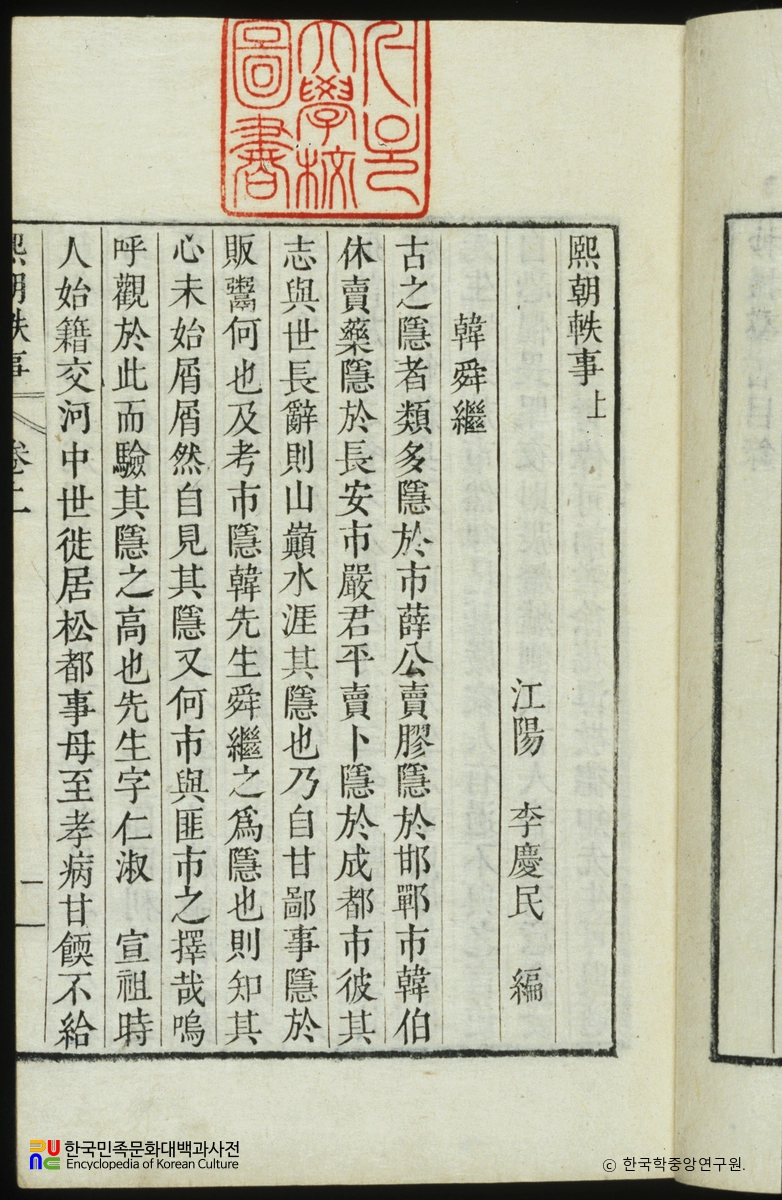 熙朝軼事上
江陽 李慶民 編
韓舜繼
古之隱者類多隱於市薛公賣膠隱於邯鄲市韓伯
休賣藥隱於長安市嚴君平賣卜隱於成都市彼其
志與世長辭則山巓水涯其隱也乃自甘鄙事隱於
販鬻何也及考市隱韓先生舜繼之爲隱也則知其
心未始屑屑然自見其隱又何市與匪市之擇哉嗚
呼觀於此而驗其隱之高也先生字仁淑 宣祖時
人始籍交河中世徙居松都事母至孝病甘餪不給
熙朝軼事 卷上 一
大學校
圖書
한국민족문화대백과사전
Encyclopedia of Korean Culture
ⓒ 한국학중앙연구원.